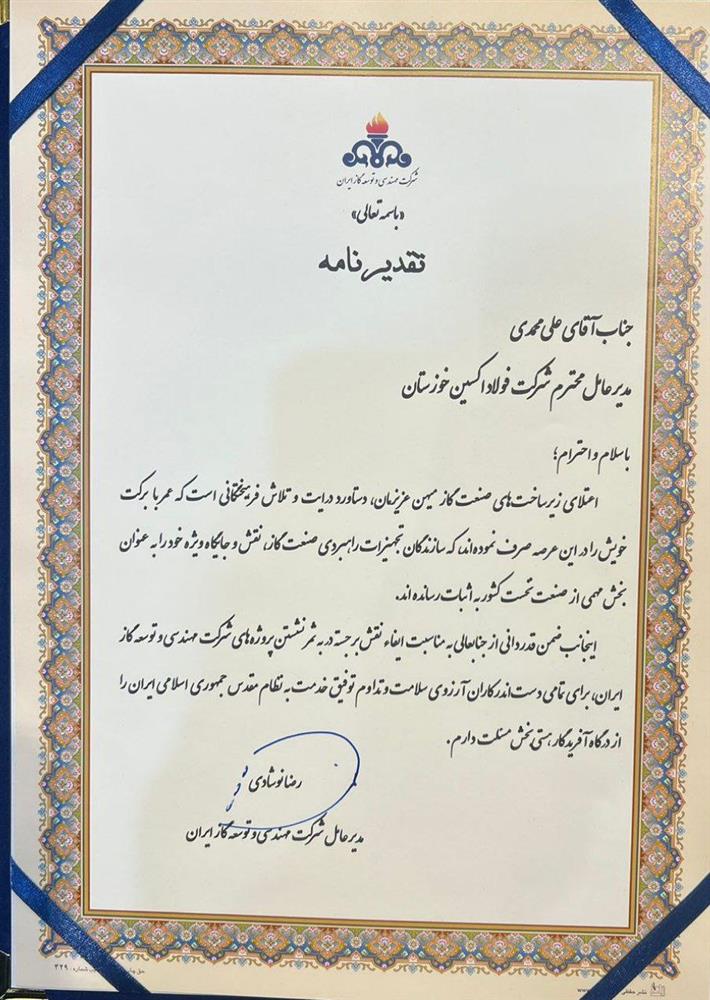 شرکت مهندسی و توسعه گاز ایران
«باسمه تعالی»
تقدیرنامه
جناب آقای علی محمدی
مدیرعامل محترم شرکت فولاد اکسین خوزستان
با سلام و احترام؛
اعتلای زیرساخت‌های صنعت گاز میهن عزیزمان، دستاورد درایت و تلاش فرهیختگانی است که عمر با برکت
خویش را در این عرصه صرف نموده‌اند، که سازندگان تجهیزات راهبردی صنعت گاز، نقش و جایگاه ویژه خود را به عنوان
بخش مهمی از صنعت نفت کشور به اثبات رسانده اند.
اینجانب ضمن قدردانی از جنابعالی به مناسبت ایفاء نقش برجسته در به ثمر نشستن پروژه های شرکت مهندسی و توسعه گاز
ایران، برای تمامی دست اندرکاران آرزوی سلامت و تداوم توفیق خدمت به نظام مقدس جمهوری اسلامی ایران را
از درگاه آفریدگار هستی بخش مسئلت دارم.
رضا نوشادی
مدیرعامل شرکت مهندسی و توسعه گاز ایران
شماره: ۳۲۹